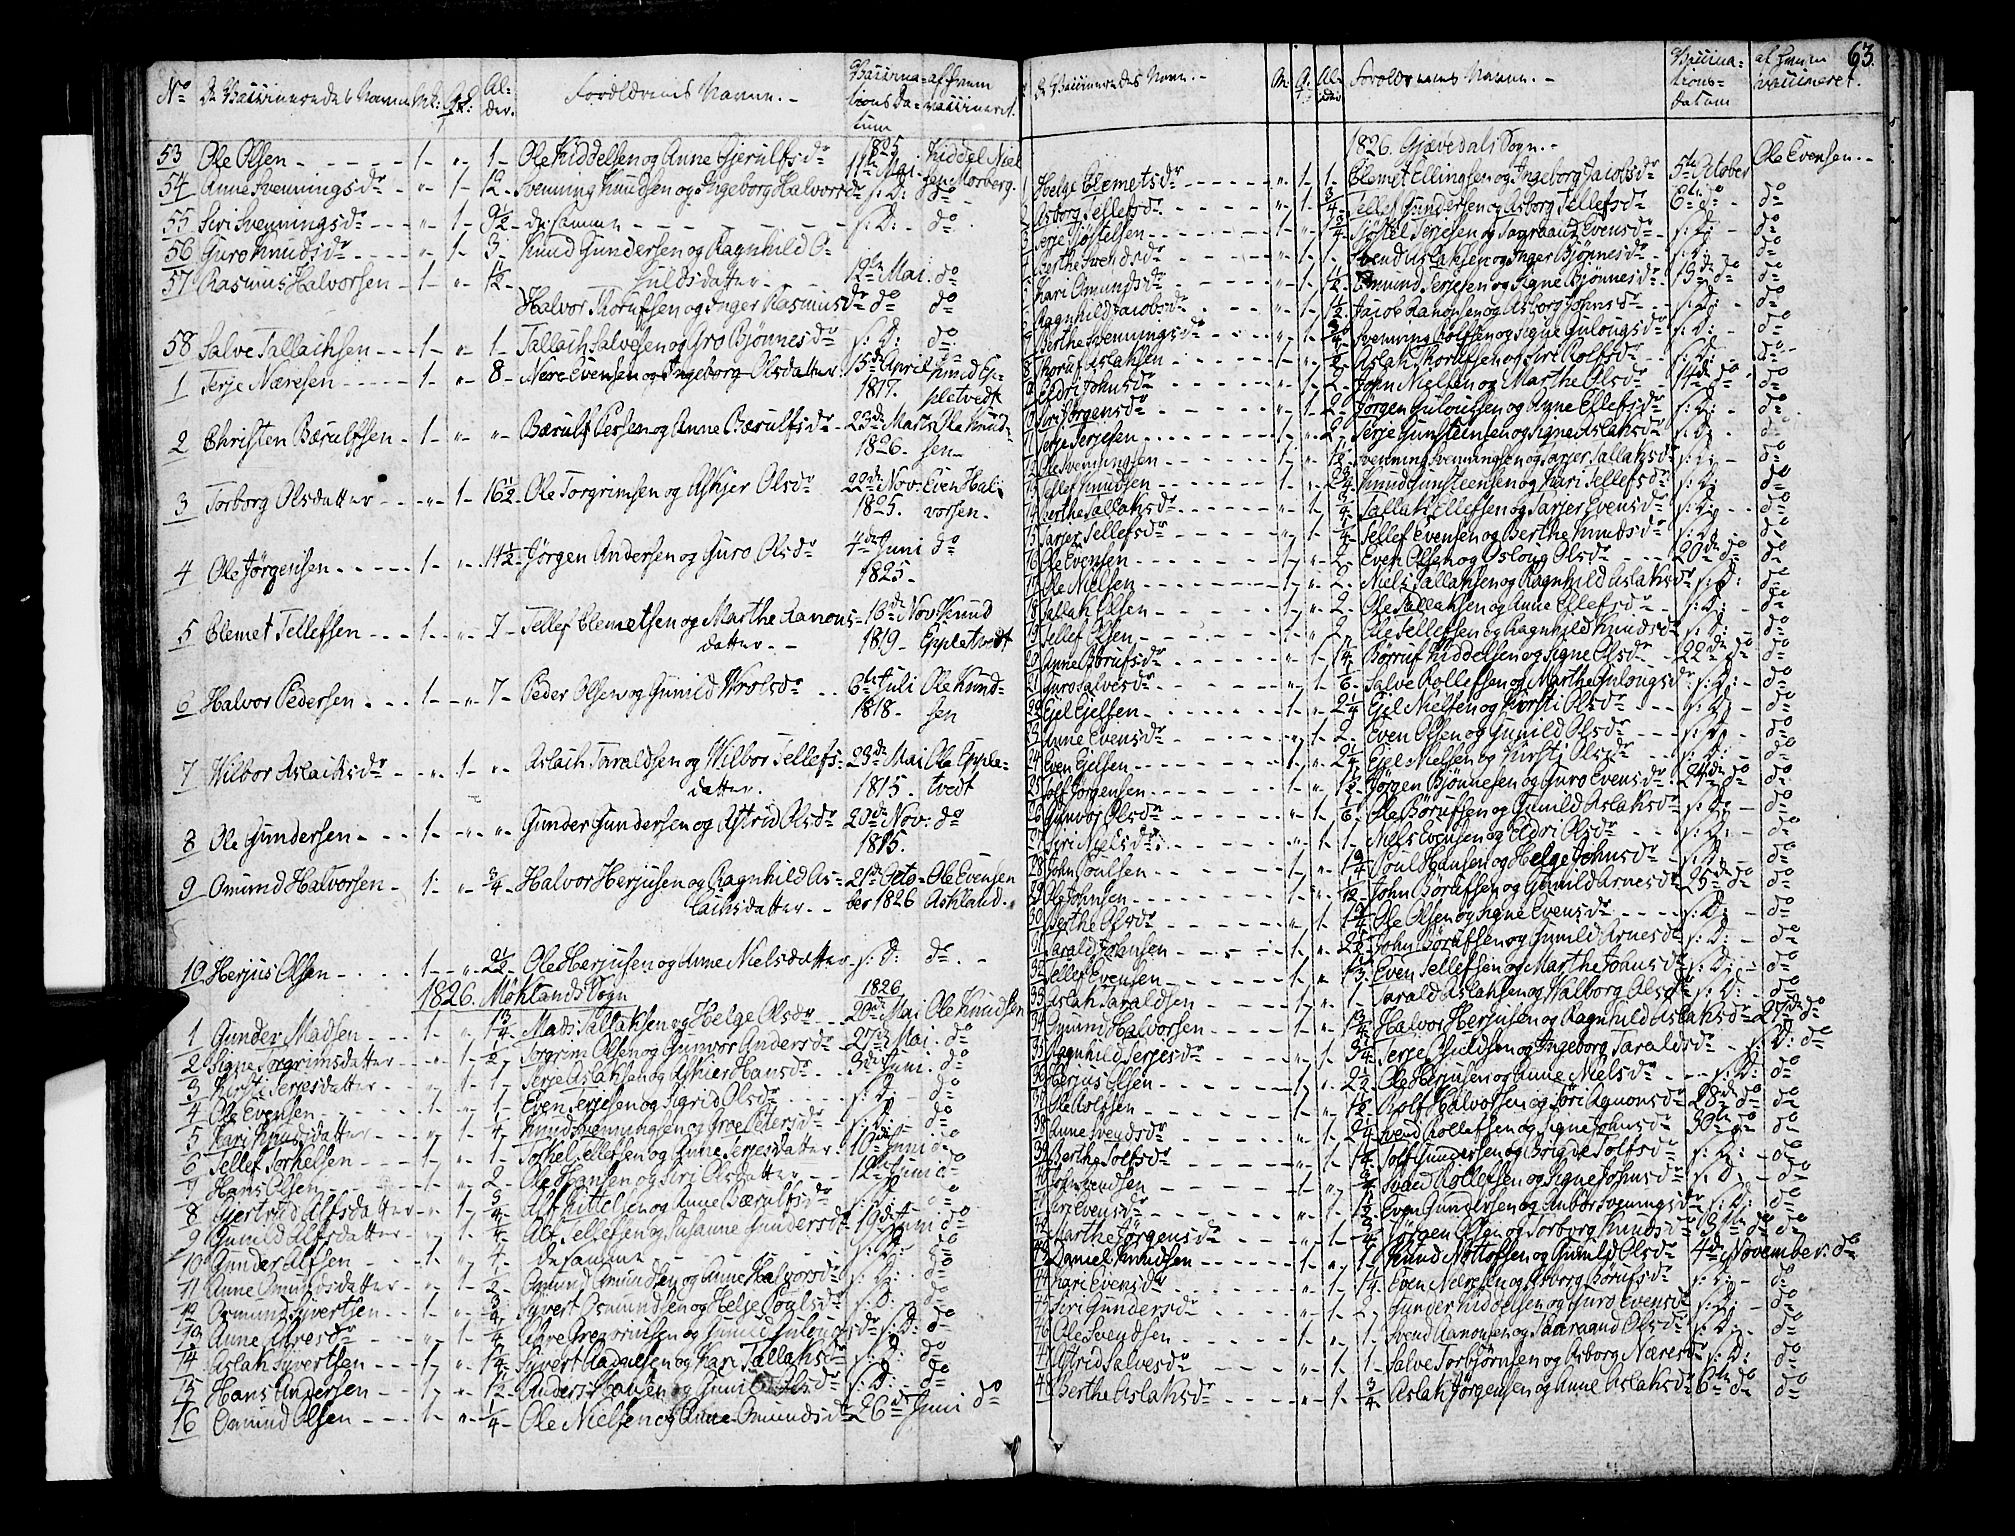 63.
No De Vaccineredes Navne Mk. Qk. Al-der. Forældrenes Navne. Vaccina-tions Da-tum af hvem vaccineret.
53 Ole Olsen 1 " 1 Ole Kiddelsen og Anne Gjerulfsdr 1825 11te Mai Kiddel Niel-
54 Anne Svenningsdr " 1 12 Svenning Knudsen og Ingeborg Halvorsdr s: D: sen Morberg
55 Siri Svenningsdr " 1 9½ de samme s: D: do
56 Guro Knudsdr " 1 3 Knud Gundersen og Ragnhild O-
57 Rasmus Halvorsen 1 " 1½ huldsdatter 12te Mai do
Halvor Thorufsen og Inger Rasmusdr do do
58 Salve Tallachsen 1 " 1 Tallach Salvesen og Gro Bjønnesdr s: D: do
1 Terje Næresen 1 " 8 Nere Evensen og Ingeborg Olsdatter 15de April Knud Ep-
1817. pletvedt
2 Christen Bærulfsen 1 " " Bærulf Persen og Anne Bærulfsdr 23de Marts Ole Knud-
1826. sen
3 Torborg Olsdatter " 1 16½ Ole Torgrimsen og Askjer Olsdr 22de Nov. Even Hal-
1825. vorsen
4 Ole Jørgensen 1 " 4½ Jørgen Andersen og Guro Olsdr 4de Juni do
1825
5 Clemet Tellefsen 1 " 7 Tellef Clemetsen og Marthe Aanons- 16de Nov. Knud
datter 1819 Eppletvedt
6 Halvor Pedersen 1 " 7 Peder Olsen og Gunild Wrolsdr 6te Juli Ole Knud-
1818 sen
7 Wilbor Aslachsdr " 1 " Aslach Taraldsen og Wilbor Tellefs- 23de Mai Ole Epple-
datter. 1815. tvedt
8 Ole Gundersen 1 " " Gunder Gundersen og Astrid Olsdr 20de Nov. do
1815.
9 Omund Halvorsen 1 " ¾ Halvor Herjusen og Ragnhild As- 21de Octo- Ole Evensen
lachsdatter ber 1826 Askland
10 Herjus Olsen 1 " 2½ Ole Herjusen og Anne Nielsdatter s: D: do
1826. Møklands Sogn 1826
1 Gunder Madsen 1 " 1¾ Mads Tallaksen og Helge Olsdr 20de Mai Ole Knudsen
2 Signe Torgrimsdatter " 1 ½ Torgrim Olsen og Gunvor Andersdr 27de Mai do
3 Kirsti Terjesdatter " 1 1 Terje Aslaksen og Askier Hansdr 3de Juni do
4 Ole Evensen 1 " 1 Even Terjesen og Sigrid Olsdr s: D: do
5 Kari Knudsdatter " 1 ¼ Knud Svenningsen og Groe Pedersdr s: D: do
6 Tellef Torkelsen 1 " 1 Torkel Tellefsen og Anne Terjesdatter 10de Juni do
7 Hans Olsen 1 " 2 Ole Hansen og Siri Olsdatter 12te Juni do
8 Gjertrud Alfsdatter " 1 ¾ Alf Kittelsen og Anne Bærulfsdr s: D: do
9 Gunild Alfsdatter " 1 ¼ Alf Tellefsen og Susanne Gundersdr 19de Juni do
10 Gunder Alfsen 1 " 4 de samme s: D: do
11 Anne Omundsdatter " 1 ½ Omund Omundsen og Anne Halvorsdr s: D: do
12 Osmund Syvertsen 1 " ¾ Syvert Osmundsen og Helje Poulsdr s: D: do
13 Anne Aavesdr " 1 ¼ Aave Gregoriusen og Gunild Gulougsdr s: D: do
14 Aslak Syvertsen 1 " 1¼ Syvert Aadnesen og Kari Tallaksdr s: D: do
15 Hans Andersen 1 " 1½ Anders Hansen og Gunild Olsdr s: D: do
16 Omund Olsen 1 " ¼ Ole Nielsen og Anne Omundsdr 26de Juni do
De Vaccineredes Navn. M. Q. Al-der Forældrenes Navne. Vaccina-tions-datum af hvem vaccineret.
1826. Gjøvedals Sogn.
1 Helge Clemetsdr " 1 1 Clemet Ellingsen og Ingeborg Jacobsdr 5te October Ole Evensen
2 Asborg Tellefsdr " 1 ¾ Tellef Gundersen og Asborg Tellefsdr 6te do do
3 Terje Sjøstelsen 1 " ¾ Sjøstel Terjesen og Taaraand Evensdr s: D: do
4 Berthe Svendsdr " 1 1 Svend Aslaksen og Inger Bjønnesdr s: D: do
5 Kari Omundsdr " 1 1½ Omund Terjesen og Signe Bjønnesdr 13de do do
6 Ragnhild Jacobsdr " 1 1½ Jacob Aanonsen og Asborg Johnsdr s: D: do
7 Berthe Svenningsdr " 1 ¾ Svenning Rolfsen og Signe Gulougsdr s: D: do
8 Thoruf Aslaksen 1 " 2 Aslak Thorufsen og Siri Rolfsdr s: D: do
9 Eldri Johnsdr " 1 2 John Nielsen og Marthe Olsdr 14de do do
10 Siri Jørgensdr " 1 2 Jørgen Gulougsen og Anne Ellefsdr s: D: do
11 Terje Terjesen 1 " 2 Terje Gunsteinsen og Signe Aslaksdr s: D: do
12 Ole Svenningsen 1 " 1½ Svenning Svenningsen og Tarjer Tallaksdr s: D: do
13 Tellef Knudsen 1 " 2¾ Knud Gunsteensen og Kari Tellefsdr s: D: do
14 Berthe Tallaksdr " 1 ¾ Tallak Ellefsen og Tarjer Evensdr s: D: do
15 Tarjer Tellefsdr " 1 ¼ Tellef Evensen og Berthe Knudsdr s: D: do
16 Ole Evensen 1 " 2 Even Olsen og Osloug Olsdr 20de do do
17 Ole Nielsen 1 " 2 Niels Tallaksen og Ragnhild Aslaksdr s: D: do
18 Tallak Olsen 1 " 2 Ole Tallaksen og Anne Ellefsdr s: D: do
19 Tellef Olsen 1 " 2 Ole Tellefsen og Ragnhild Knudsdr s: D: do
20 Anne Børufsdr " 1 1¼ Børruf Kiddelsen og Signe Olsdr 22de do do
21 Guro Salvesdr " 1 6 Salve Rollefsen og Marthe Gulougsdr s: D: do
22 Ejel Ejelsen 1 " 2¼ Ejel Nielsen og Kirsti Olsdr s: D: do
23 Anne Evensdr " 1 2 Even Olsen og Gunild Olsdr s: D: do
24 Even Ejelsen 1 " 2¼ Ejel Nielsen og Kirsti Olsdr s: D: do
25 Tolf Jørgensen 1 " 1½ Jørgen Bjønnesen og Guro Evensdr 24de do do
26 Gunvor Olsdr " 1 6 Ole Børufsen og Gunild Aslaksdr s: D: do
27 Siri Nielsdr " 1 1 Niels Evensen og Eldri Olsdr s: D: do
28 John Poulsen 1 " 1¾ Poul Hansen og Helge Johnsdr s: D: do
29 Ole Johnsen 1 " 12 John Børufsen og Gunild Arnesdr 25de do do
30 Berthe Olsdr " 1 1¼ Ole Olsen og Signe Evensdr s: D: do
31 Tarald Johnsen 1 " 2½ John Børufsen og Gunild Arnesdr s: D: do
32 Tellef Evensen 1 " 13 Even Tellefsen og Marthe Johnsdr s: D: do
33 Aslak Taraldsen 1 " 1 Tarald Aslaksen og Walborg Olsdr s: D: do
34 Omund Halvorsen 1 " 1¾ Halvor Herjusen og Ragnhild Aslaksdr 27de do do
35 Ragnhild Terjesdr " 1 3¼ Terje Ohuldsen og Ingeborg Taraldsdr s: D: do
36 Herjus Olsen 1 " 2½ Ole Herjusen og Anne Nielsdr s: D: do
37 Ole Rolfsen 1 " 1½ Rolf Halvorsen og Siri Aanonsdr 28de do do
38 Anne Svendsdr " 1 2¼ Svend Rollefsen og Signe Johnsdr 30te do do
39 Berthe Tolfsdr " 1 1¼ Tolf Gundersen og Børgde Tolfsdr s: D: do
40 John Svendsen 1 " ¾ Svend Rollefsen og Signe Johnsdr s: D: do
41 Siri Evensdr " 1 1½ Even Gundersen og Anbor Svenningsdr s: D: do
42 Marthe Jørgensdr " 1 ¾ Jørgen Olsen og Torborg Knudsdr 31te do do
43 Daniel Knudsen 1 " 1 Knud Nottofsen og Gunild Olsdr 4de November do
44 Kari Evensdr " 1 1¼ Even Næresen og Asborg Børufsdr s: D: do
45 Siri Gundersdr " 1 2 Gunder Kiddelsen og Guro Evensdr s: D: do
46 Ole Svendsen 1 " 1 Svend Aanonsen og Taaraand Olsdr s: D: do
47 Astrid Salvesdr " 1 1 Salve Torbjørnsen og Asborg Næresdr s: D: do
48 Berthe Aslaksdr " 1 ¾ Aslak Jørgensen og Anne Aslaksdr 6te do do